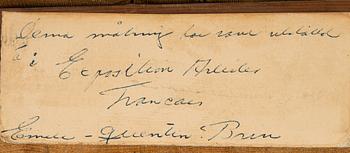 Denna målning har varit utställd
i Exposition Artistes
Francais
Emile - Quentin Brin